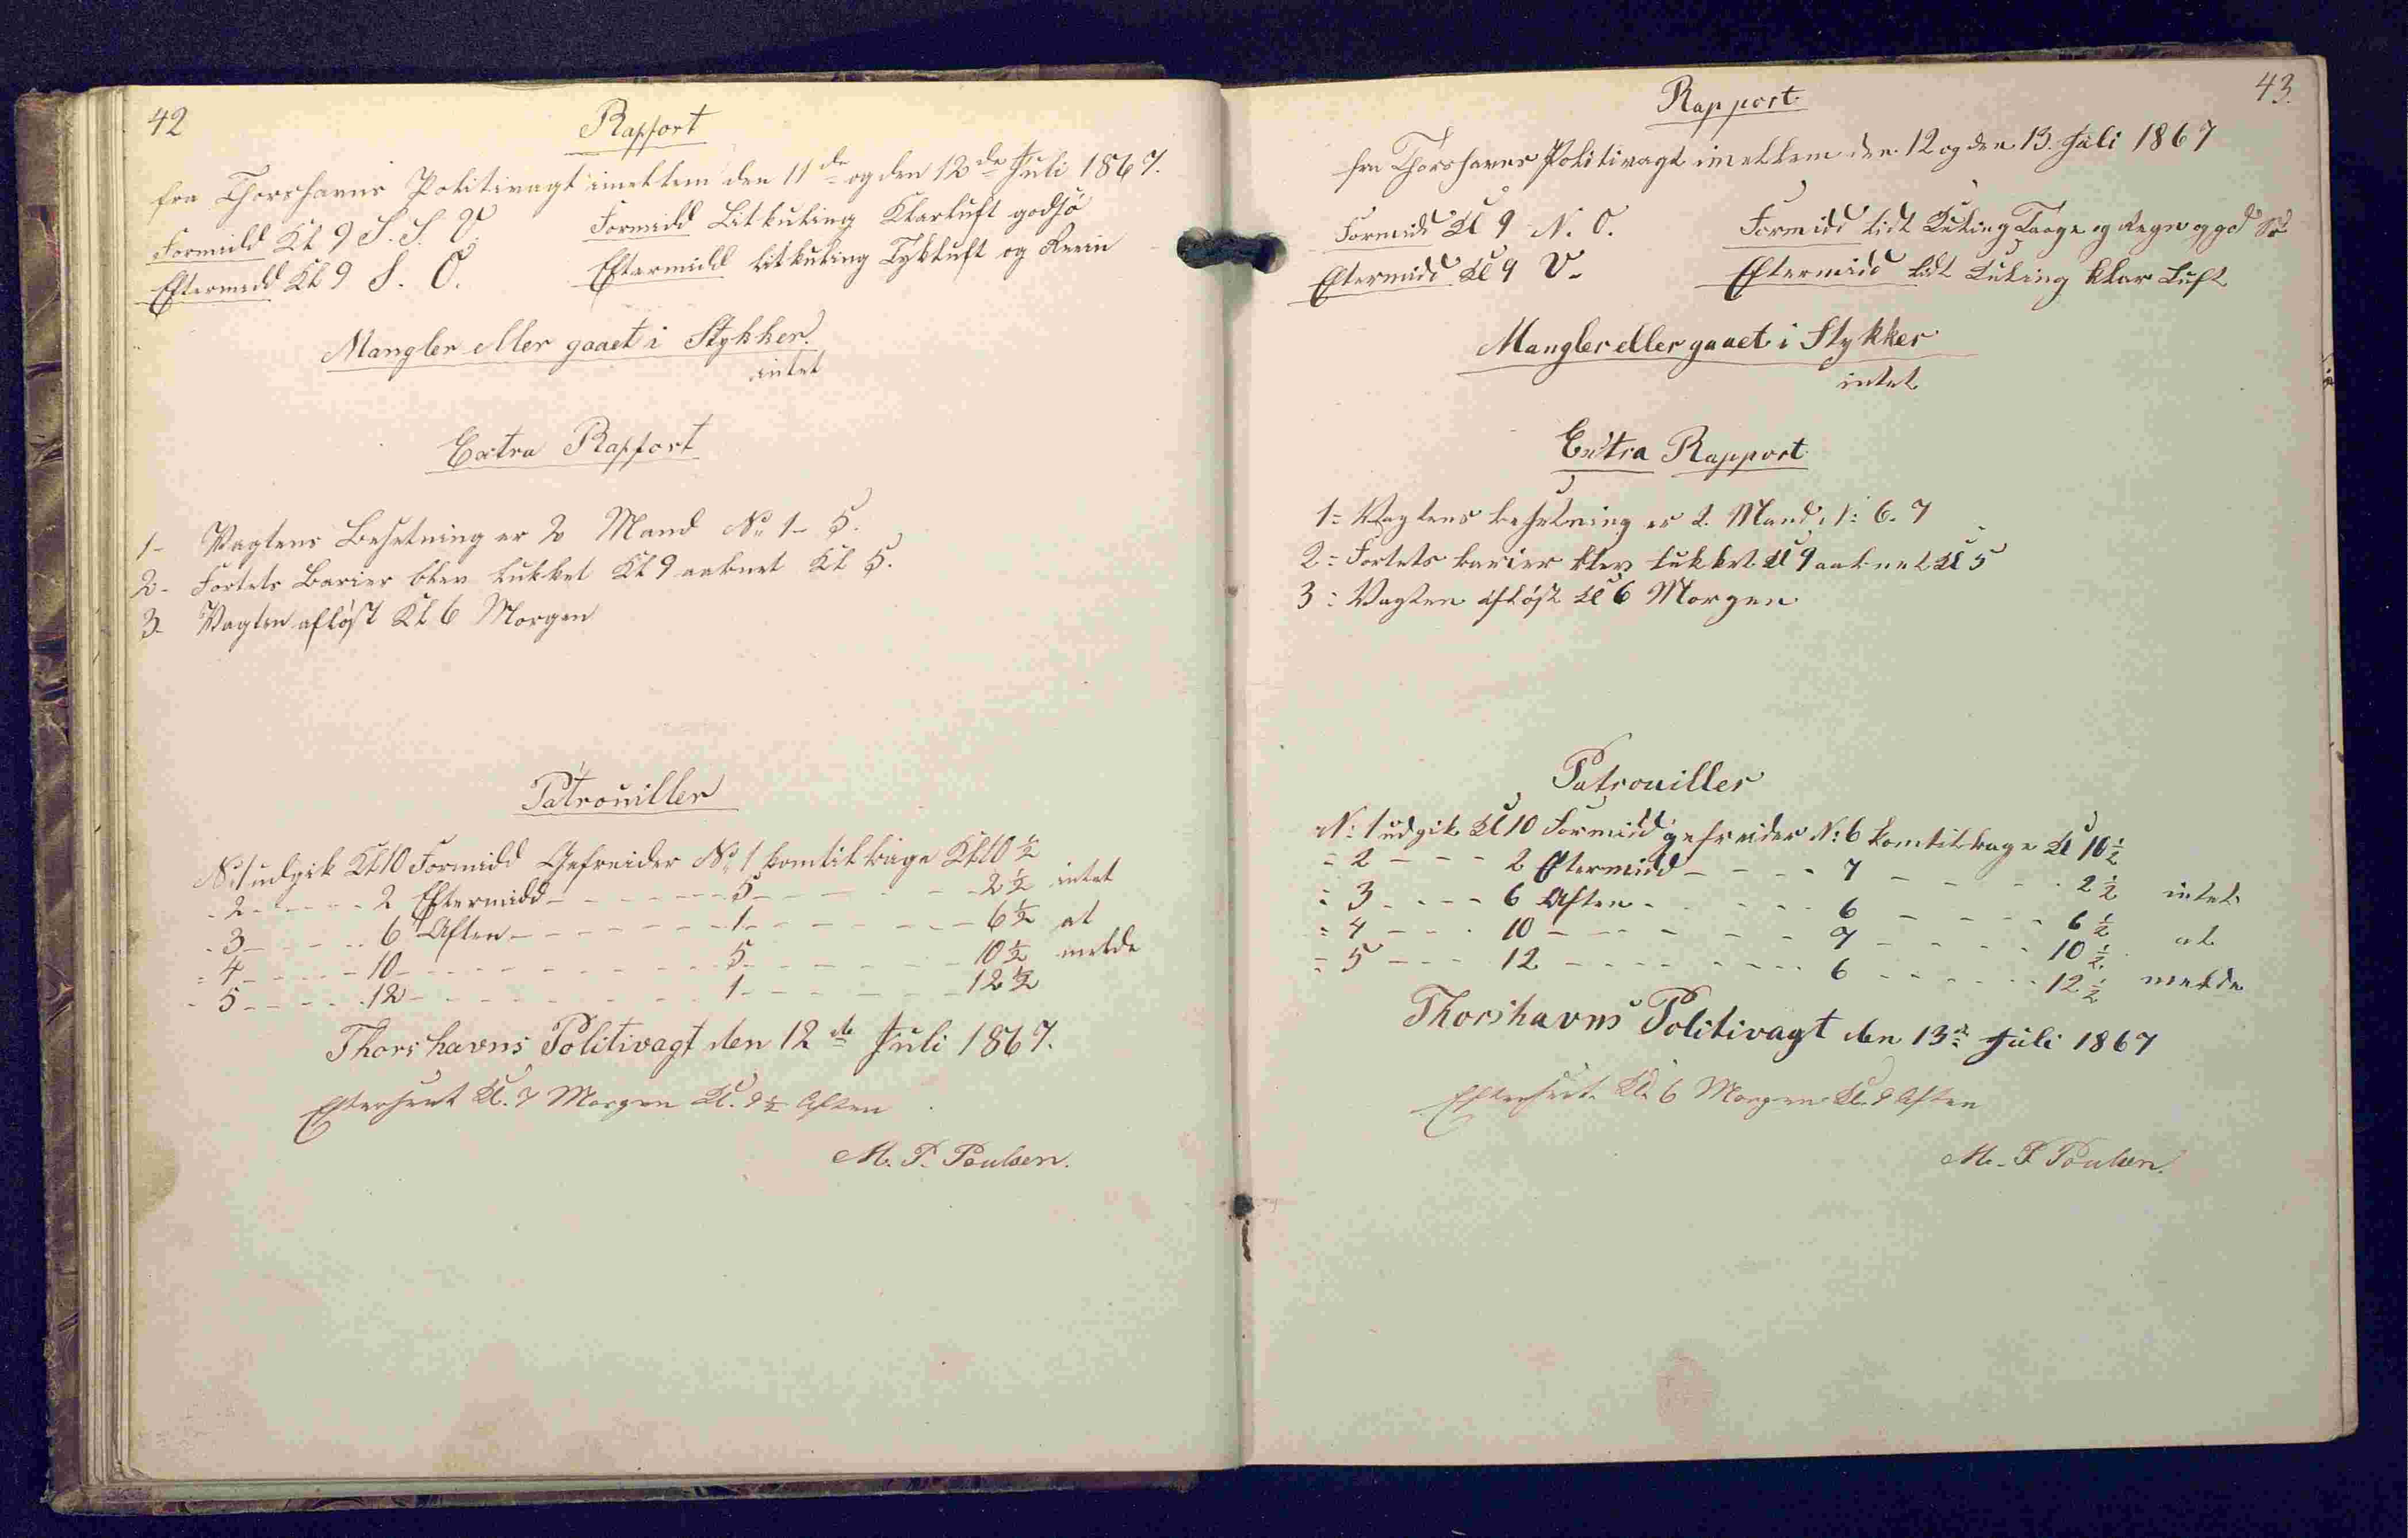 42
Rapport
fra Thorshavns Politivagt imellem den 11de og den 12de Juli 1867.
Formidd Kl 9 S. S. V.
Formidd Litkuling Klarluft godsö
Eftermidd Kl 9 S. O.
Eftermidd litkuling Tykluft og Rein
Mangler eller gaaet i Stykker.
intet
Extra Rapport
1- Vagtens Besetning er 2 Mand No 1- 5.
2- Fortets Barier blev lukket Kl 9 aabnet Kl 5.
3- Vagten aflöst Kl 6 Morgen
Patrouiller
No 1 udgik Kl 10 Formidd Gefreider No 1 kom tilbage Kl 10 ½
- 2 - - - - - 2 Eftermidd - - - - - - - 5 - - - - - 2 ½ intet
- 3 - - - - 6 Aften - - - - - - - 1 - - - - - - - 6 ½ at
= 4 - - - - - 10 - - - - - - - - - 5 - - - - - - 10 ½ melde
- 5 - - - - - 12 - - - - - - - - - 1 - - - - - - 12 ½
Thorshavns Politivagt den 12de Juli 1867.
Efterseet Kl. 7 Morgen Kl. 9 ½ Aften
M. P. Poulsen.
43.
Rapport
fra Thorshavns Politivagt imellem den 12 og den 13. Juli 1867
Formidd Kl 9 N. O.
Formidd lidt Kuling Taage og Regn og god Sö
Eftermidd Kl 9 V-
Eftermidd lidt Kuling klar Luft
Mangler eller gaaet i Stykker
intet
Extra Rapport
1= Vagtens besetning er 2. Mand N: 6. 7
2= Fortets barier blev lukket Kl 9 aabnet Kl 5
3: Vagten aflöst Kl 6 Morgen
Patrouiller
N: 1 udgik Kl 10 Formidd gefreider N: 6 kom tilbage Kl 10 ½
= 2 - - - - 2 Eftermidd - - - - 7 - - - - - 2 ½ intet
= 3 - - - - 6 Aften - - - - - 6 - - - - - 6 ½ at
= 4 - - - 10 - - - - - - - 7 - - - - - 10 ½
= 5 - - - - 12 - - - - - - - 6 - - - - - - 12 ½ melde
Thorshavns Politivagt den 13de Juli 1867
Efterseet Kl. 6 Morgen Kl. 9 Aften
M. P. Poulsen.